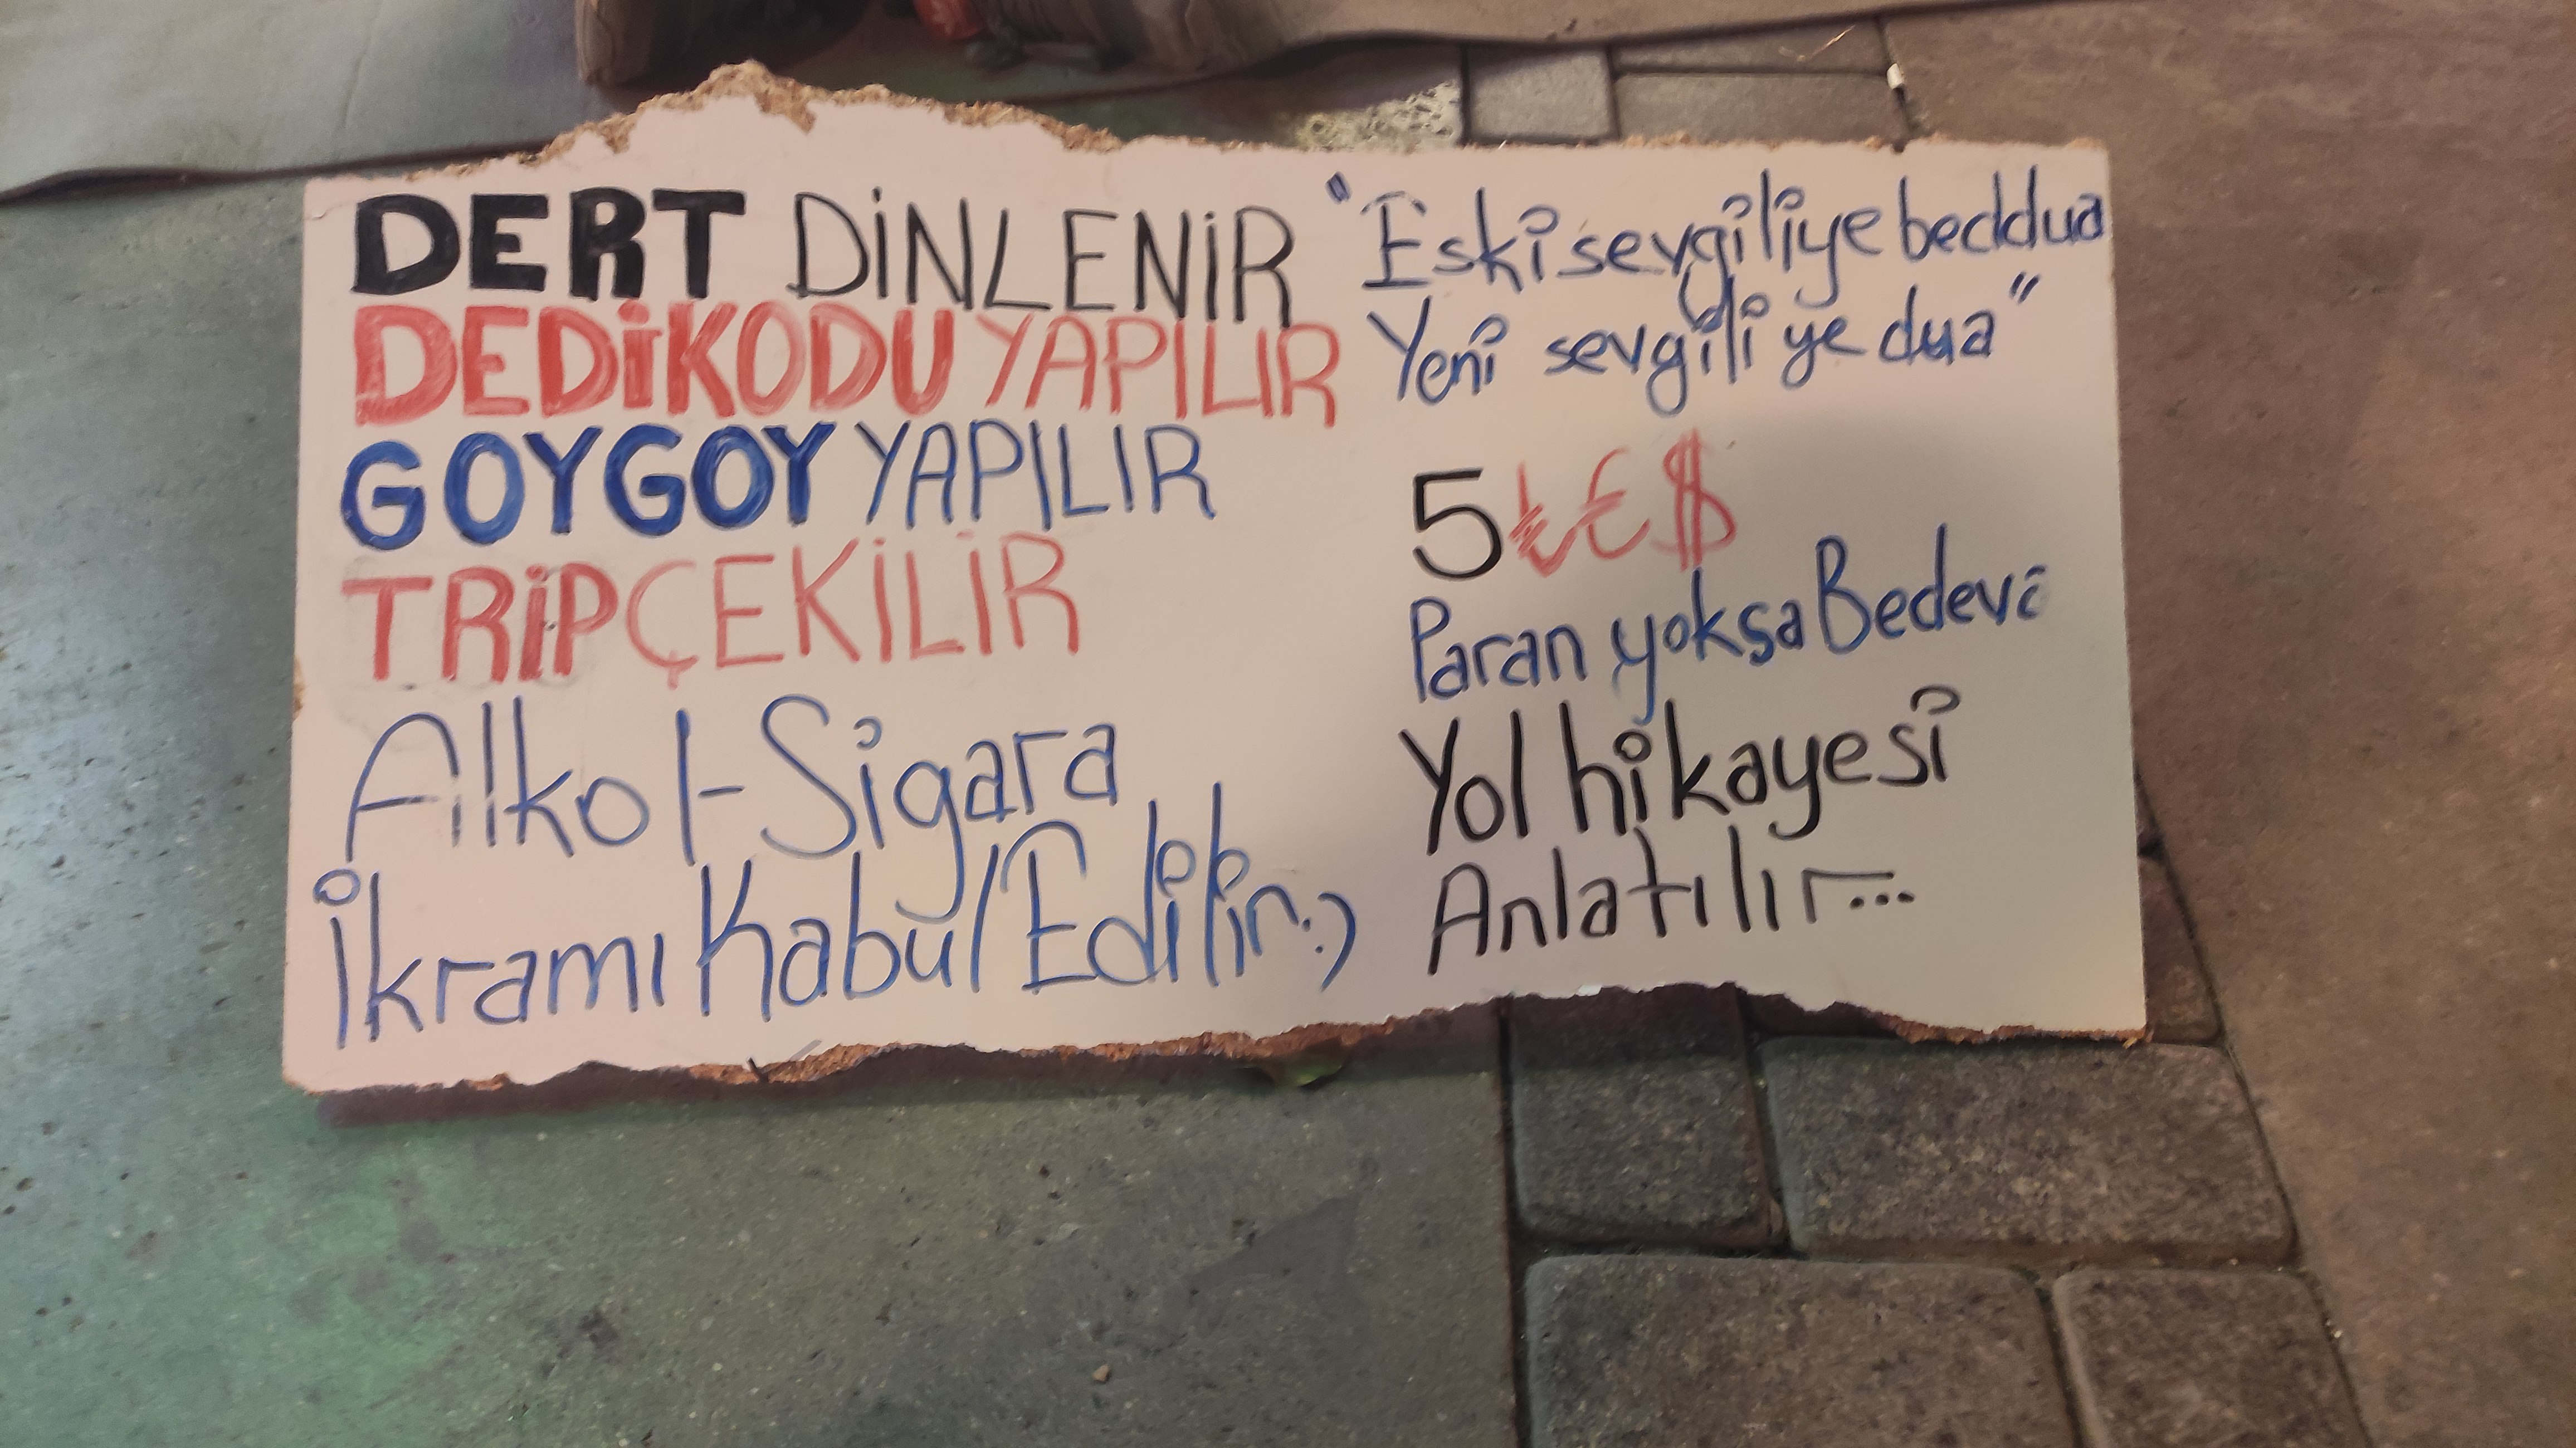 DERT DİNLENİR
DEDİKODU YAPILIR
GOYGOY YAPILIR
TRİP ÇEKİLİR
Alkol-Sigara
İkramı Kabul Edilir:)
"Eski sevgiliye beddua
Yeni sevgiliye dua"
5 ₺ € $
Paran yoksa Bedevi
Yol hikayesi
Anlatılır...